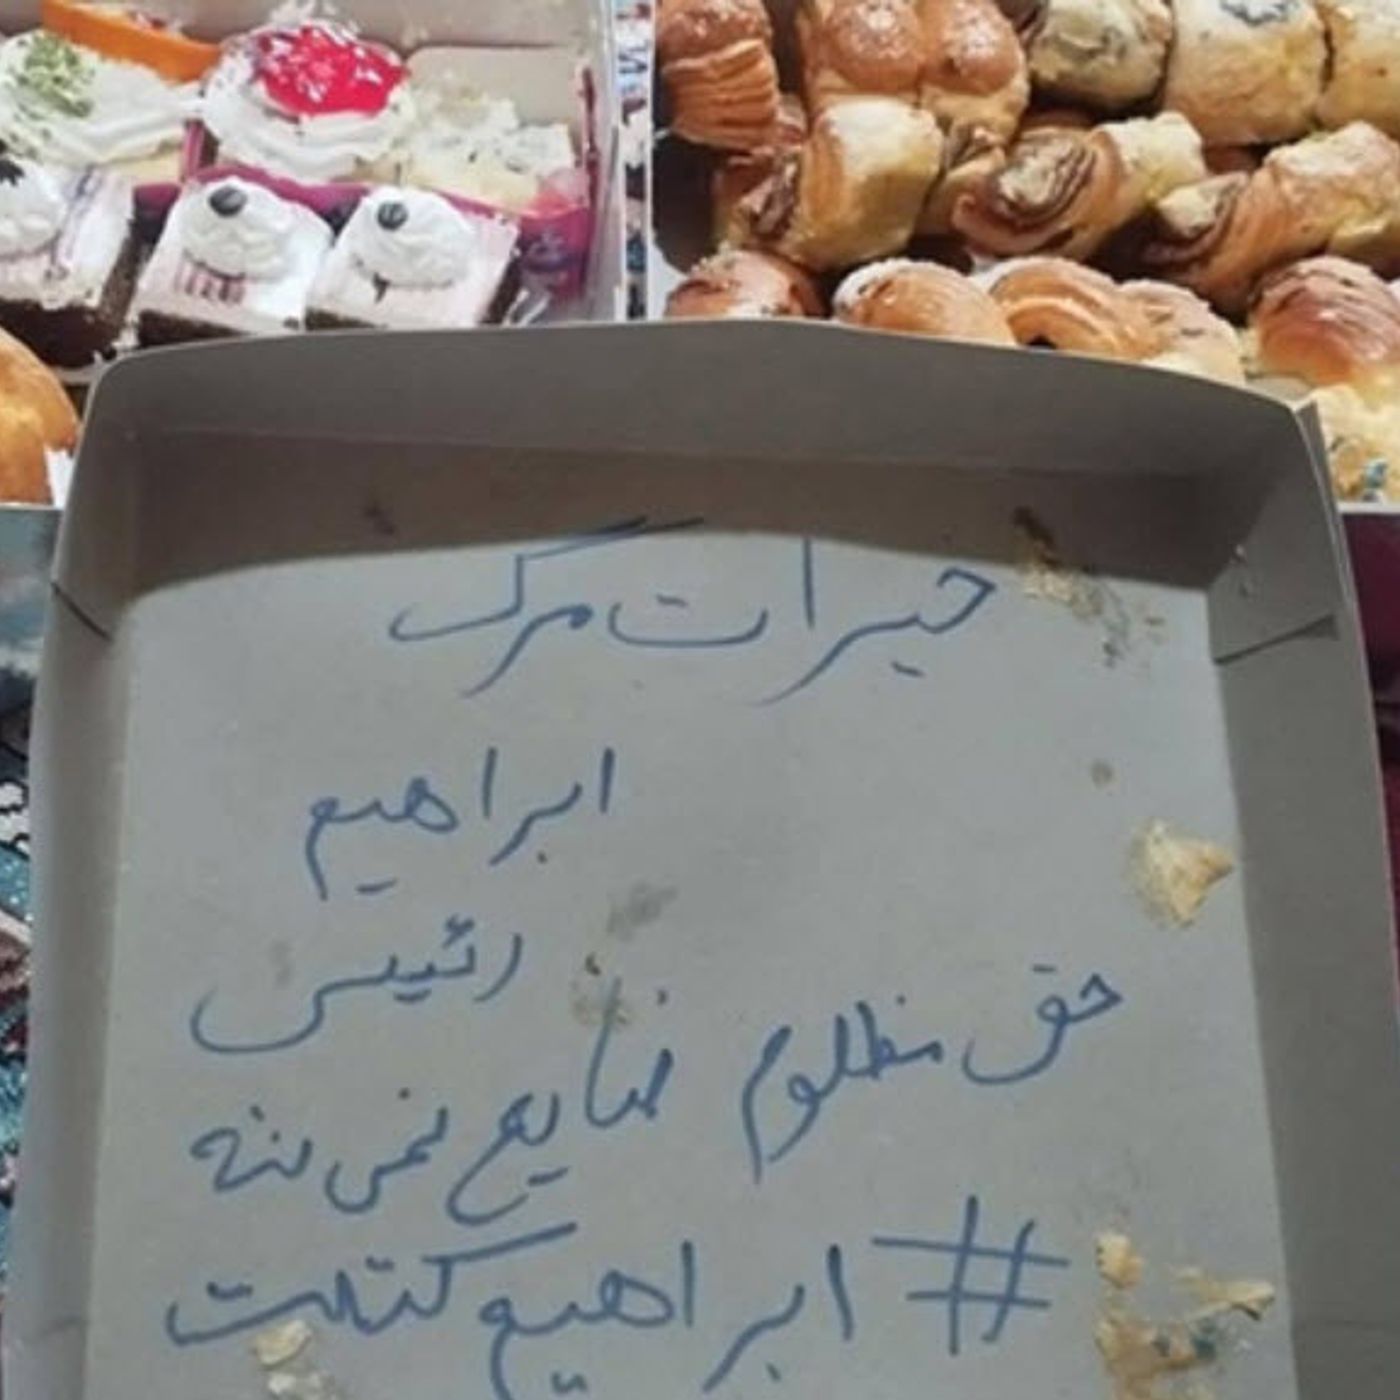 خیرات مرگ
ابراهیم
رئیسی
حق مظلوم ضایع نمی شه
# ابراهیم کتلت